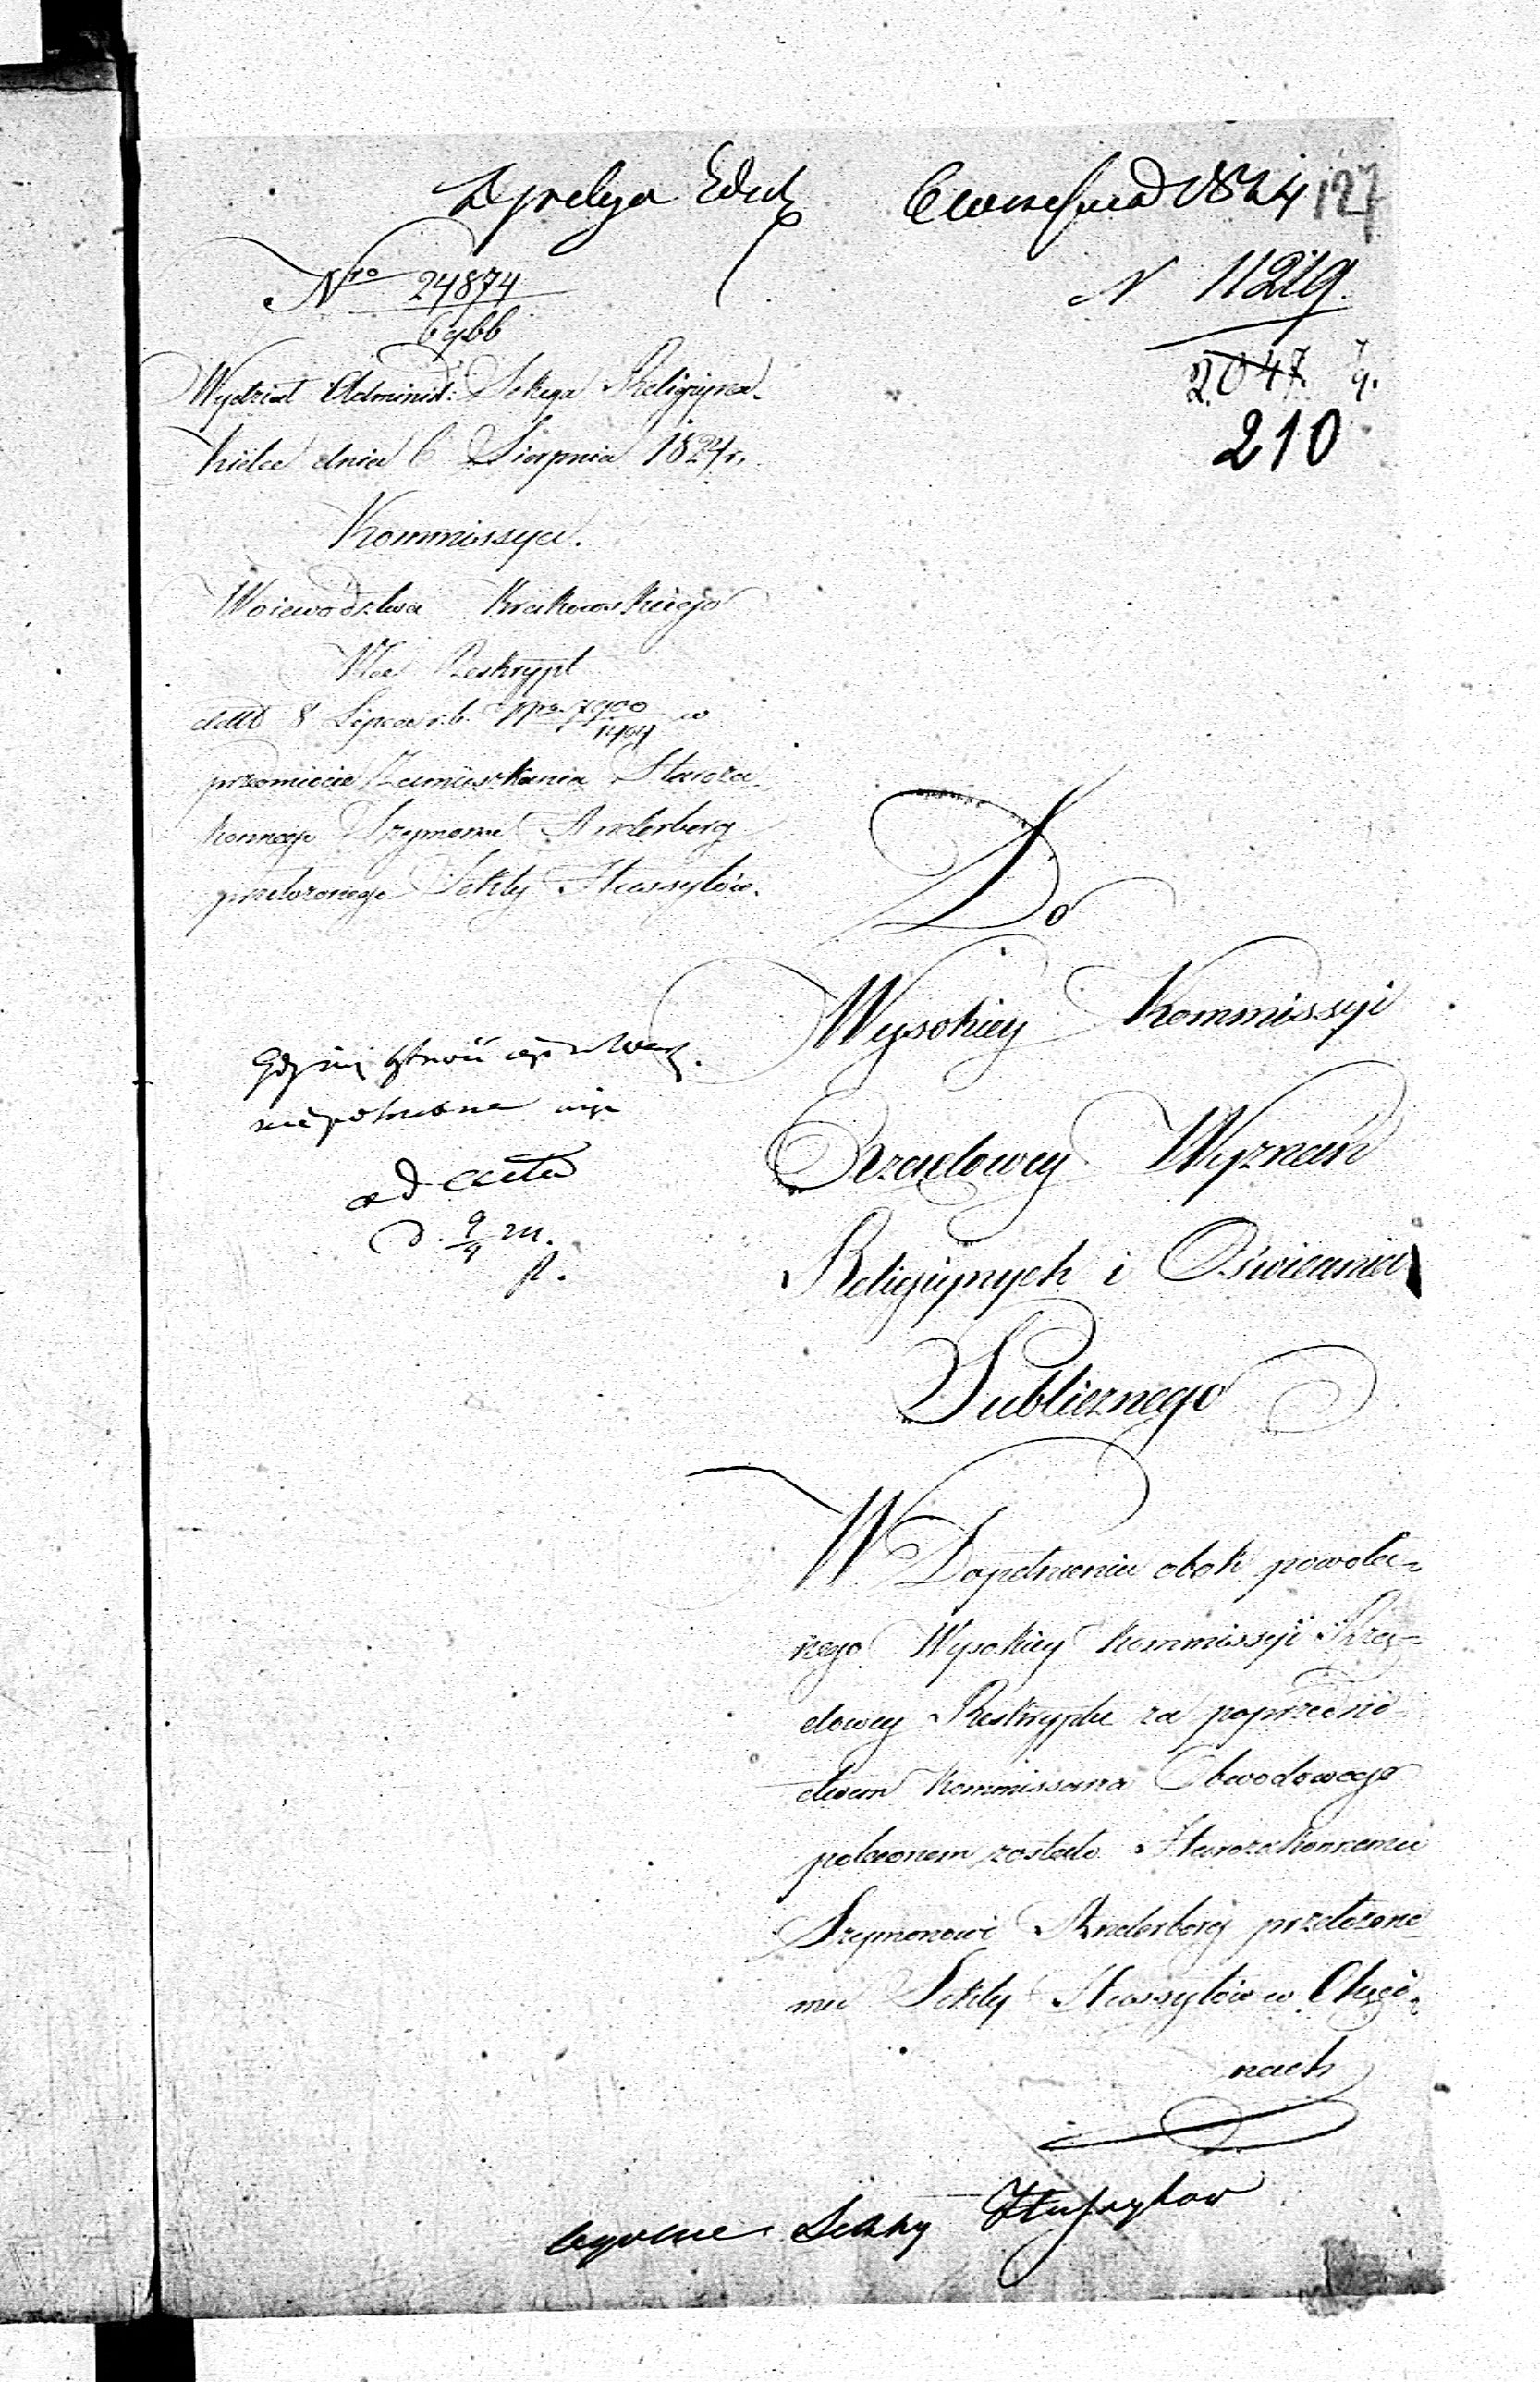 1824 127
Nro 24874
6966
N 11219.
2047. 7/9.
210
Wydział Administ: Sekcya Religiyna.
Kielce dnia 6 Sierpnia 1824 r.
Kommissya.
Woiewództwa Krakowskiego
Na Reskrypt
datto 8 Lipca r. b. w
przedmiocie Zamieszkania Staroza
konnego Szymona Anderberg
przełożonego Sekty Hussytów.
niepotrzebne
ad acta
d. 9/9
Do
Wysokiey Kommissyi
Rządowey Wyznań
Religiynych i Oświecenia
Publicznego
W Dopełnieniu obok powoła=
nego Wysokiey Kommissyi Rzą=
dowey Reskryptu za poprzednic
twem Kommissarza Obwodowego
polecono zostało Starozakonnemu
Szymonowi Anderberg przełożone
mu Sekty Hussytów w Chęci=
nach
Sekty Hussytow